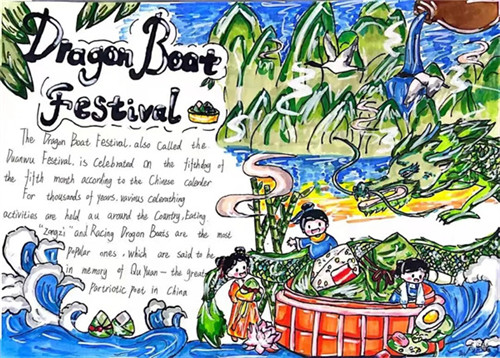 Dragon Boat
Festival
The Dragon Boat Festival, also called the
Duanwu Festival, is celebrated on the fifthday of
the fifth month according to the Chinese calender
For thousands of years, various calebrating
activities are held au around the Country, Eating
"Zongzi" and Racing Dragon Boats are the most
popular ones, which are said to be
in memory of Qu Yuan — the great
Partriotic poet in China